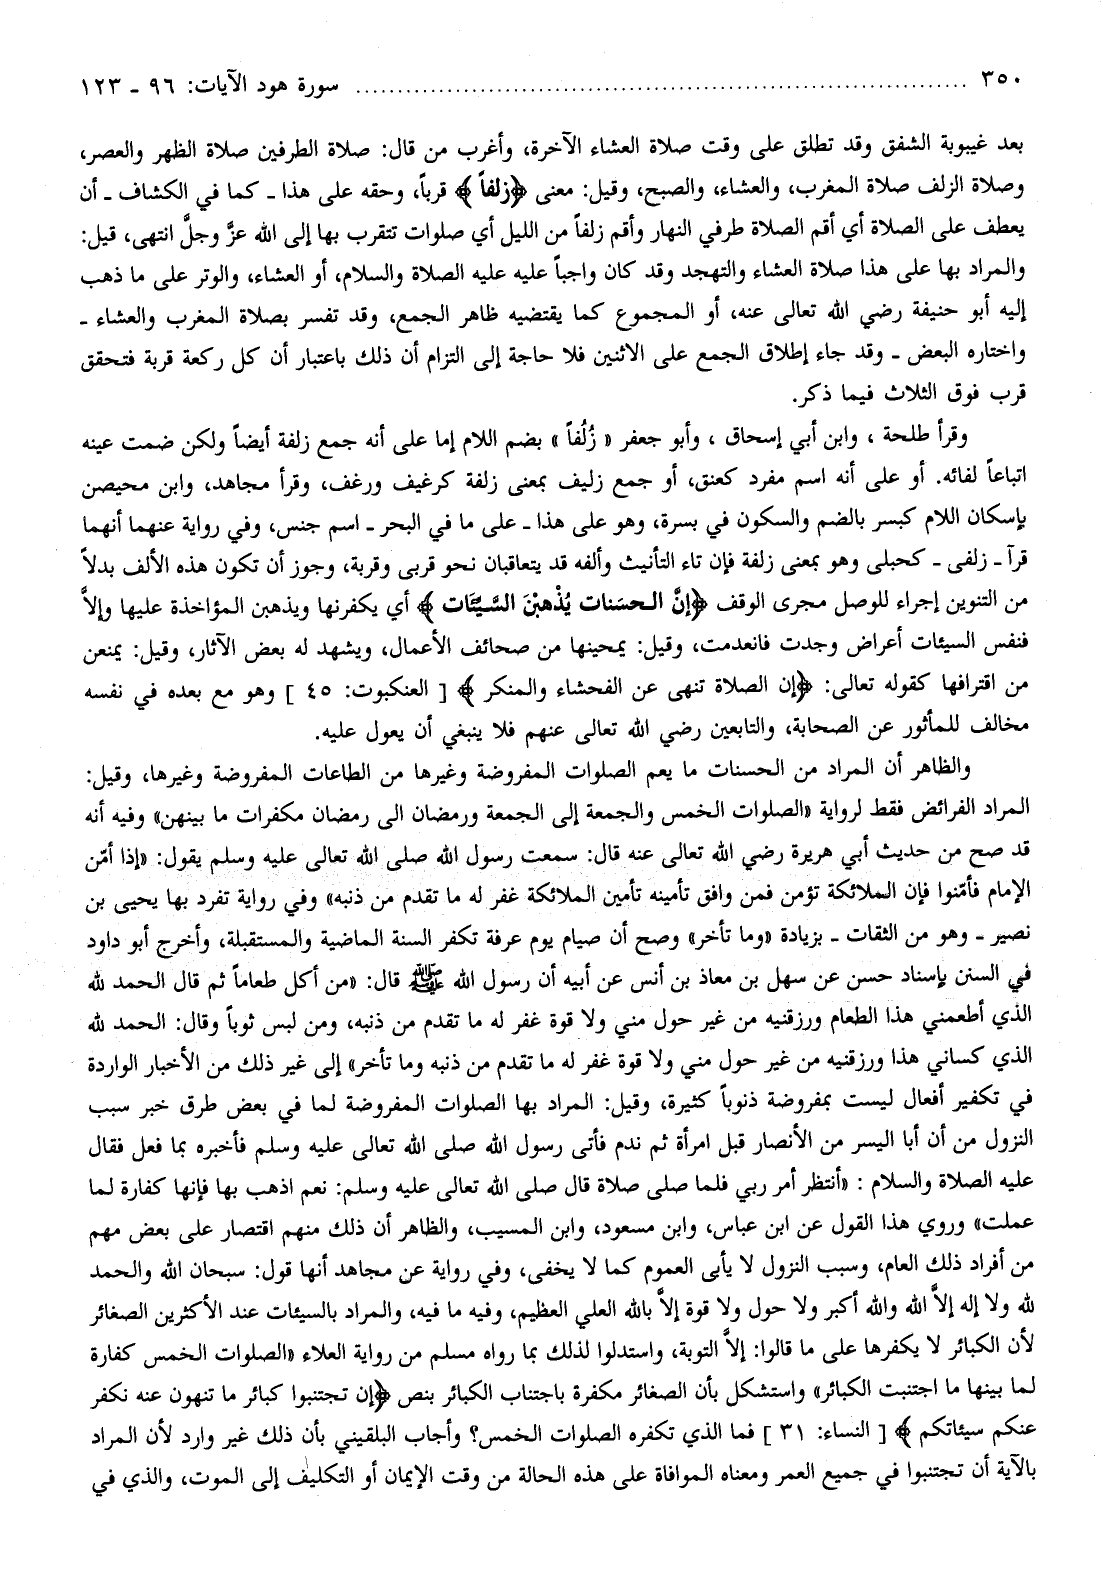 ٣٥٠ ........................................ سورة هود الآيات: ٩٦ ـ ١٢٣
بعد غيبوبة الشفق وقد تطلق على وقت صلاة العشاء الآخرة، وأغرب من قال: صلاة الطرفين صلاة الظهر والعصر،
وصلاة الزلف صلاة المغرب، والعشاء، والصبح، وقيل: معنى ﴿زلفاً﴾ قرباً، وحقه على هذا ـ كما في الكشاف ـ أن
يعطف على الصلاة أي أقم الصلاة طرفي النهار وأقم زلفاً من الليل أي صلوات تتقرب بها إلى الله عزَّ وجلَّ انتهى، قيل:
والمراد بها على هذا صلاة العشاء والتهجد وقد كان واجباً عليه عليه الصلاة والسلام، أو العشاء، والوتر على ما ذهب
إليه أبو حنيفة رضي الله تعالى عنه، أو المجموع كما يقتضيه ظاهر الجمع، وقد تفسر بصلاة المغرب والعشاء ـ
واختاره البعض ـ وقد جاء إطلاق الجمع على الاثنين فلا حاجة إلى التزام أن ذلك باعتبار أن كل ركعة قربة فتحقق
قرب فوق الثلاث فيما ذكر.
وقرأ طلحة ، وابن أبي إسحاق ، وأبو جعفر « زُلُفاً » بضم اللام إما على أنه جمع زلفة أيضاً ولكن ضمت عينه
اتباعاً لفائه. أو على أنه اسم مفرد كعنق، أو جمع زليف بمعنى زلفة كرغيف ورغف، وقرأ مجاهد، وابن محيصن
بإسكان اللام كبسر بالضم والسكون في بسرة، وهو على هذا ـ على ما في البحر ـ اسم جنس، وفي رواية عنهما أنهما
قرآ ـ زلفى ـ كحبلى وهو بمعنى زلفة فإن تاء التأنيث وألفه قد يتعاقبان نحو قربى وقربة، وجوز أن تكون هذه الألف بدلاً
من التنوين إجراء للوصل مجرى الوقف ﴿إنَّ الـحسَنات يُذْهبْنَ السَّيِّئَات﴾ أي يكفرنها ويذهبن المؤاخذة عليها وإلاَّ
فنفس السيئات أعراض وجدت فانعدمت، وقيل: يمحينها من صحائف الأعمال، ويشهد له بعض الآثار، وقيل: يمنعن
من اقترافها كقوله تعالى: ﴿إن الصلاة تنهى عن الفحشاء والمنكر﴾ [ العنكبوت: ٤٥ ] وهو مع بعده في نفسه
مخالف للمأثور عن الصحابة، والتابعين رضي الله تعالى عنهم فلا ينبغي أن يعول عليه.
والظاهر أن المراد من الحسنات ما يعم الصلوات المفروضة وغيرها من الطاعات المفروضة وغيرها، وقيل:
المراد الفرائض فقط لرواية «الصلوات الخمس والجمعة إلى الجمعة ورمضان الى رمضان مكفرات ما بينهن» وفيه أنه
قد صح من حديث أبي هريرة رضي الله تعالى عنه قال: سمعت رسول الله صلى الله تعالى عليه وسلم يقول: «إذا أمّن
الإمام فأمّنوا فإن الملائكة تؤمن فمن وافق تأمينه تأمين الملائكة غفر له ما تقدم من ذنبه» وفي رواية تفرد بها يحيى بن
نصير ـ وهو من الثقات ـ بزيادة «وما تأخر» وصح أن صيام يوم عرفة تكفر السنة الماضية والمستقبلة، وأخرج أبو داود
في السنن بإسناد حسن عن سهل بن معاذ بن أنس عن أبيه أن رسول الله ﷺ قال: «من أكل طعاماً ثم قال الحمد لله
الذي أطعمني هذا الطعام ورزقنيه من غير حول مني ولا قوة غفر له ما تقدم من ذنبه، ومن لبس ثوباً وقال: الحمد لله
الذي كساني هذا ورزقنيه من غير حول مني ولا قوة غفر له ما تقدم من ذنبه وما تأخر» إلى غير ذلك من الأخبار الواردة
في تكفير أفعال ليست بمفروضة ذنوباً كثيرة، وقيل: المراد بها الصلوات المفروضة لما في بعض طرق خبر سبب
النزول من أن أبا اليسر من الأنصار قبل امرأة ثم ندم فأتى رسول الله صلى الله تعالى عليه وسلم فأخبره بما فعل فقال
عليه الصلاة والسلام : «أنتظر أمر ربي فلما صلى صلاة قال صلى الله تعالى عليه وسلم: نعم اذهب بها فإنها كفارة لما
عملت» وروي هذا القول عن ابن عباس، وابن مسعود، وابن المسيب، والظاهر أن ذلك منهم اقتصار على بعض مهم
من أفراد ذلك العام، وسبب النزول لا يأبى العموم كما لا يخفى، وفي رواية عن مجاهد أنها قول: سبحان الله والحمد
لله ولا إله إلاَّ الله والله أكبر ولا حول ولا قوة إلاَّ بالله العلي العظيم، وفيه ما فيه، والمراد بالسيئات عند الأكثرين الصغائر
لأن الكبائر لا يكفرها على ما قالوا: إلاَّ التوبة، واستدلوا لذلك بما رواه مسلم من رواية العلاء «الصلوات الخمس كفارة
لما بينها ما اجتنبت الكبائر» واستشكل بأن الصغائر مكفرة باجتناب الكبائر بنص ﴿إن تـجتنبوا كبائر ما تنهون عنه نكفر
عنكم سيئاتكم﴾ [ النساء: ٣١ ] فما الذي تكفره الصلوات الخمس؟ وأجاب البلقيني بأن ذلك غير وارد لأن المراد
بالآية أن تـجتنبوا في جميع العمر ومعناه الموافاة على هذه الحالة من وقت الإيمان أو التكليف إلى الموت، والذي في